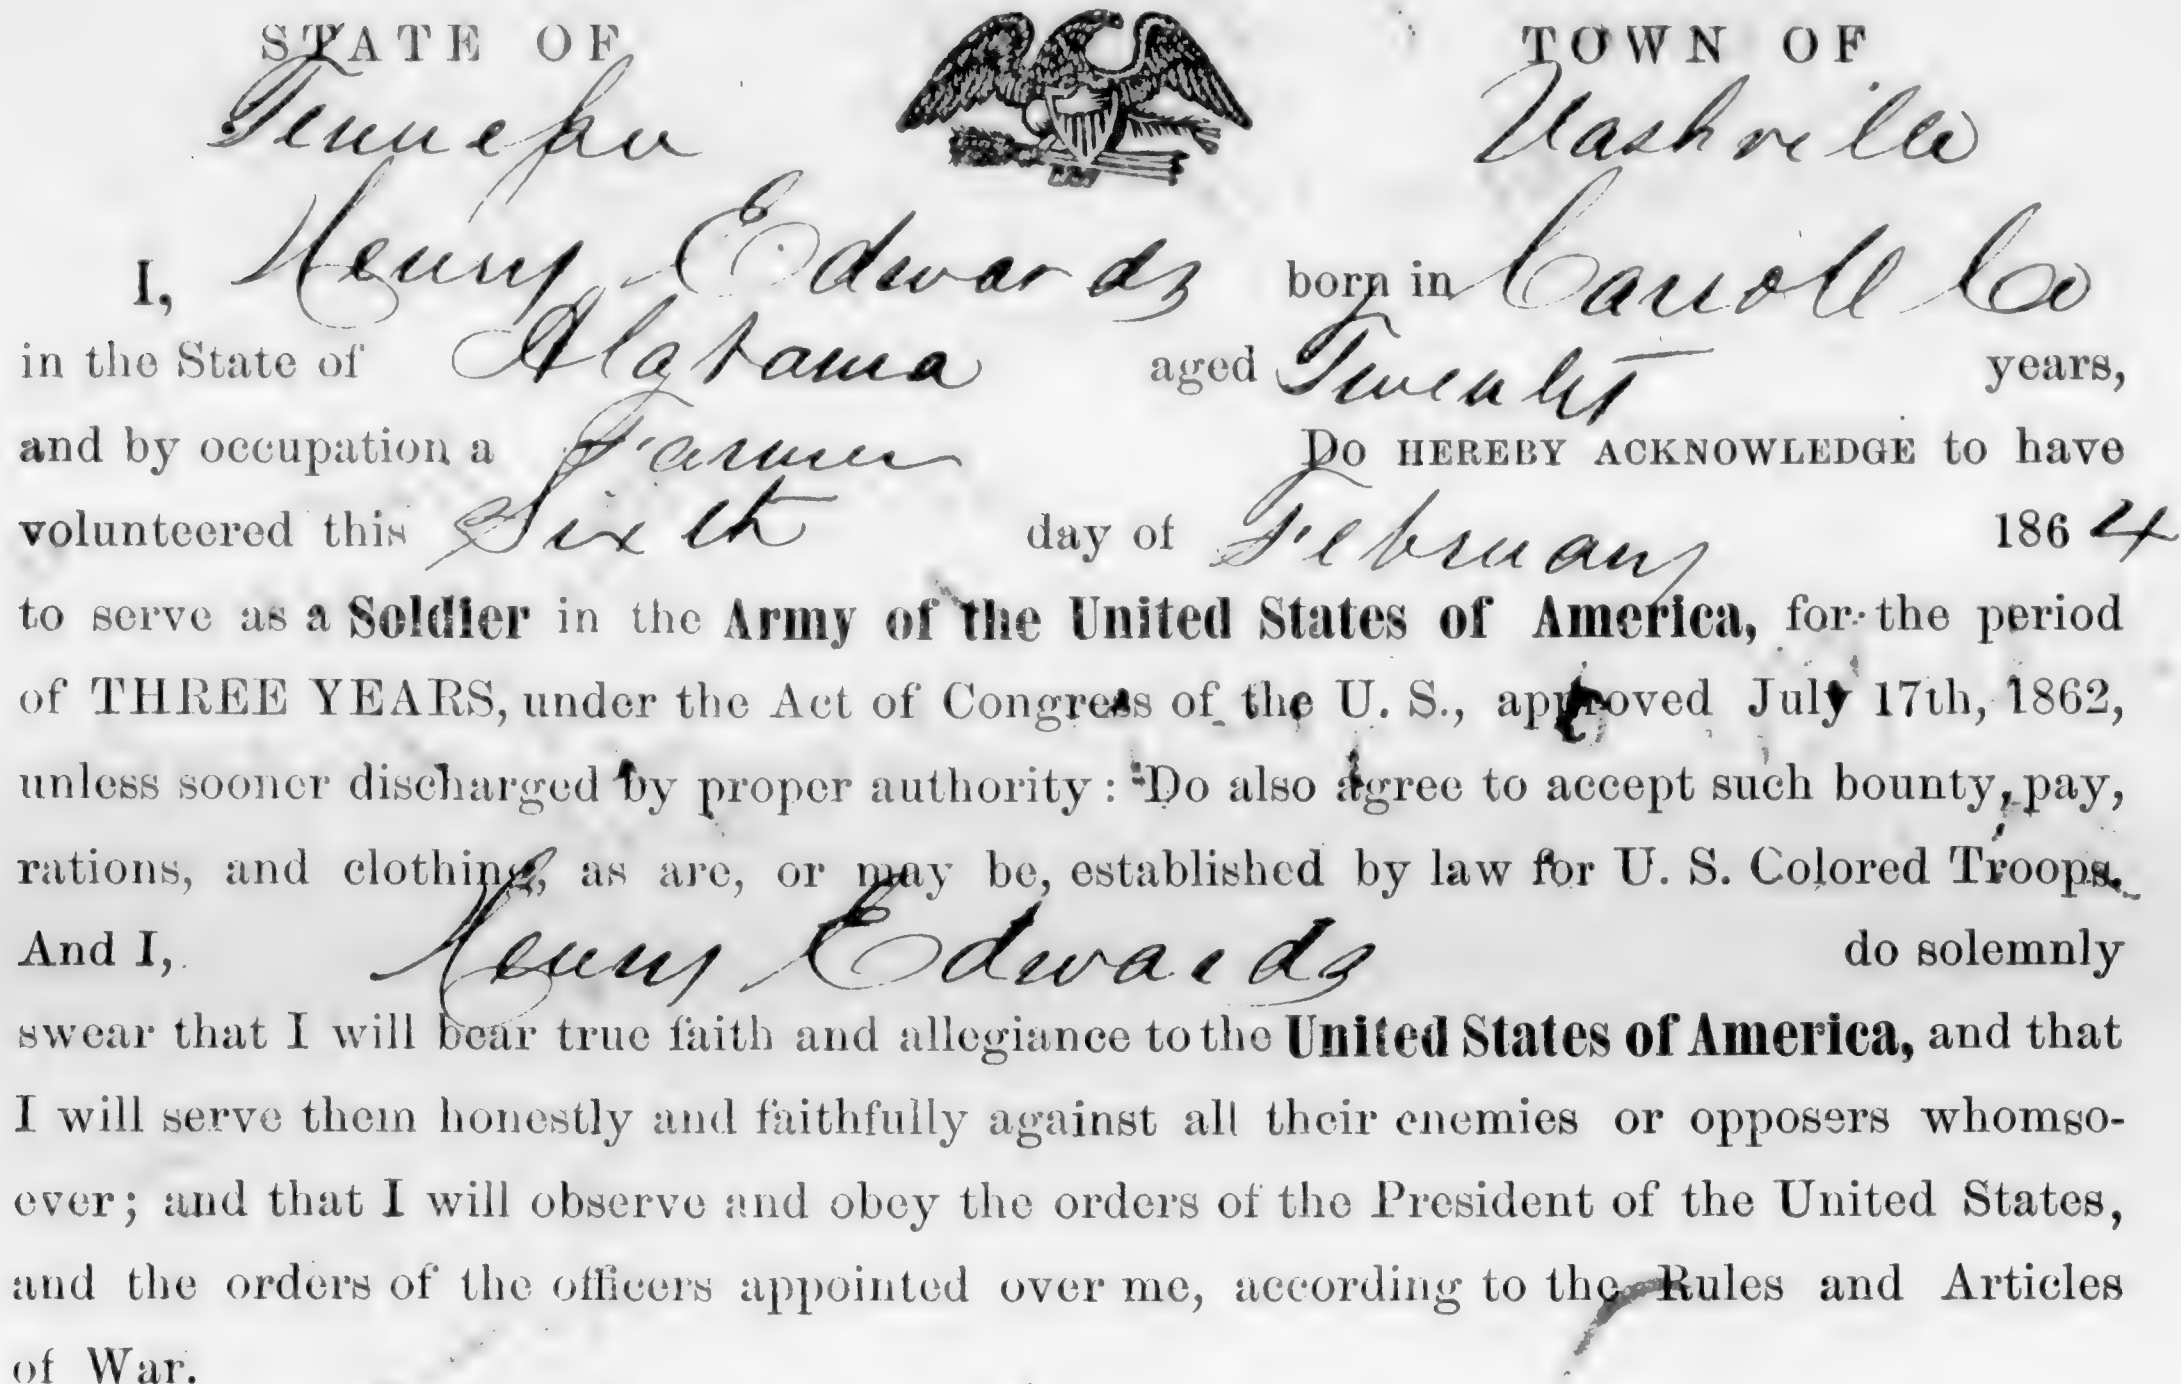 STATE OF TOWN OF
Tennessee Nashville
I, Henry Edwards born in Carroll Co
in the State of Alabama aged Twenty years,
and by occupation a Farmer Do HEREBY ACKNOWLEDGE to have
volunteered this Sixth day of February 1864
to serve as a Soldier in the Army of the United States of America, for the period
of THREE YEARS, under the Act of Congress of the U. S., approved July 17th, 1862,
unless sooner discharged by proper authority: Do also agree to accept such bounty, pay,
rations, and clothing, as are, or may be, established by law for U. S. Colored Troops.
And I, Henry Edwards do solemnly
swear that I will bear true faith and allegiance to the United States of America, and that
I will serve them honestly and faithfully against all their enemies or opposers whomso-
ever; and that I will observe and obey the orders of the President of the United States,
and the orders of the officers appointed over me, according to the Rules and Articles
of War.